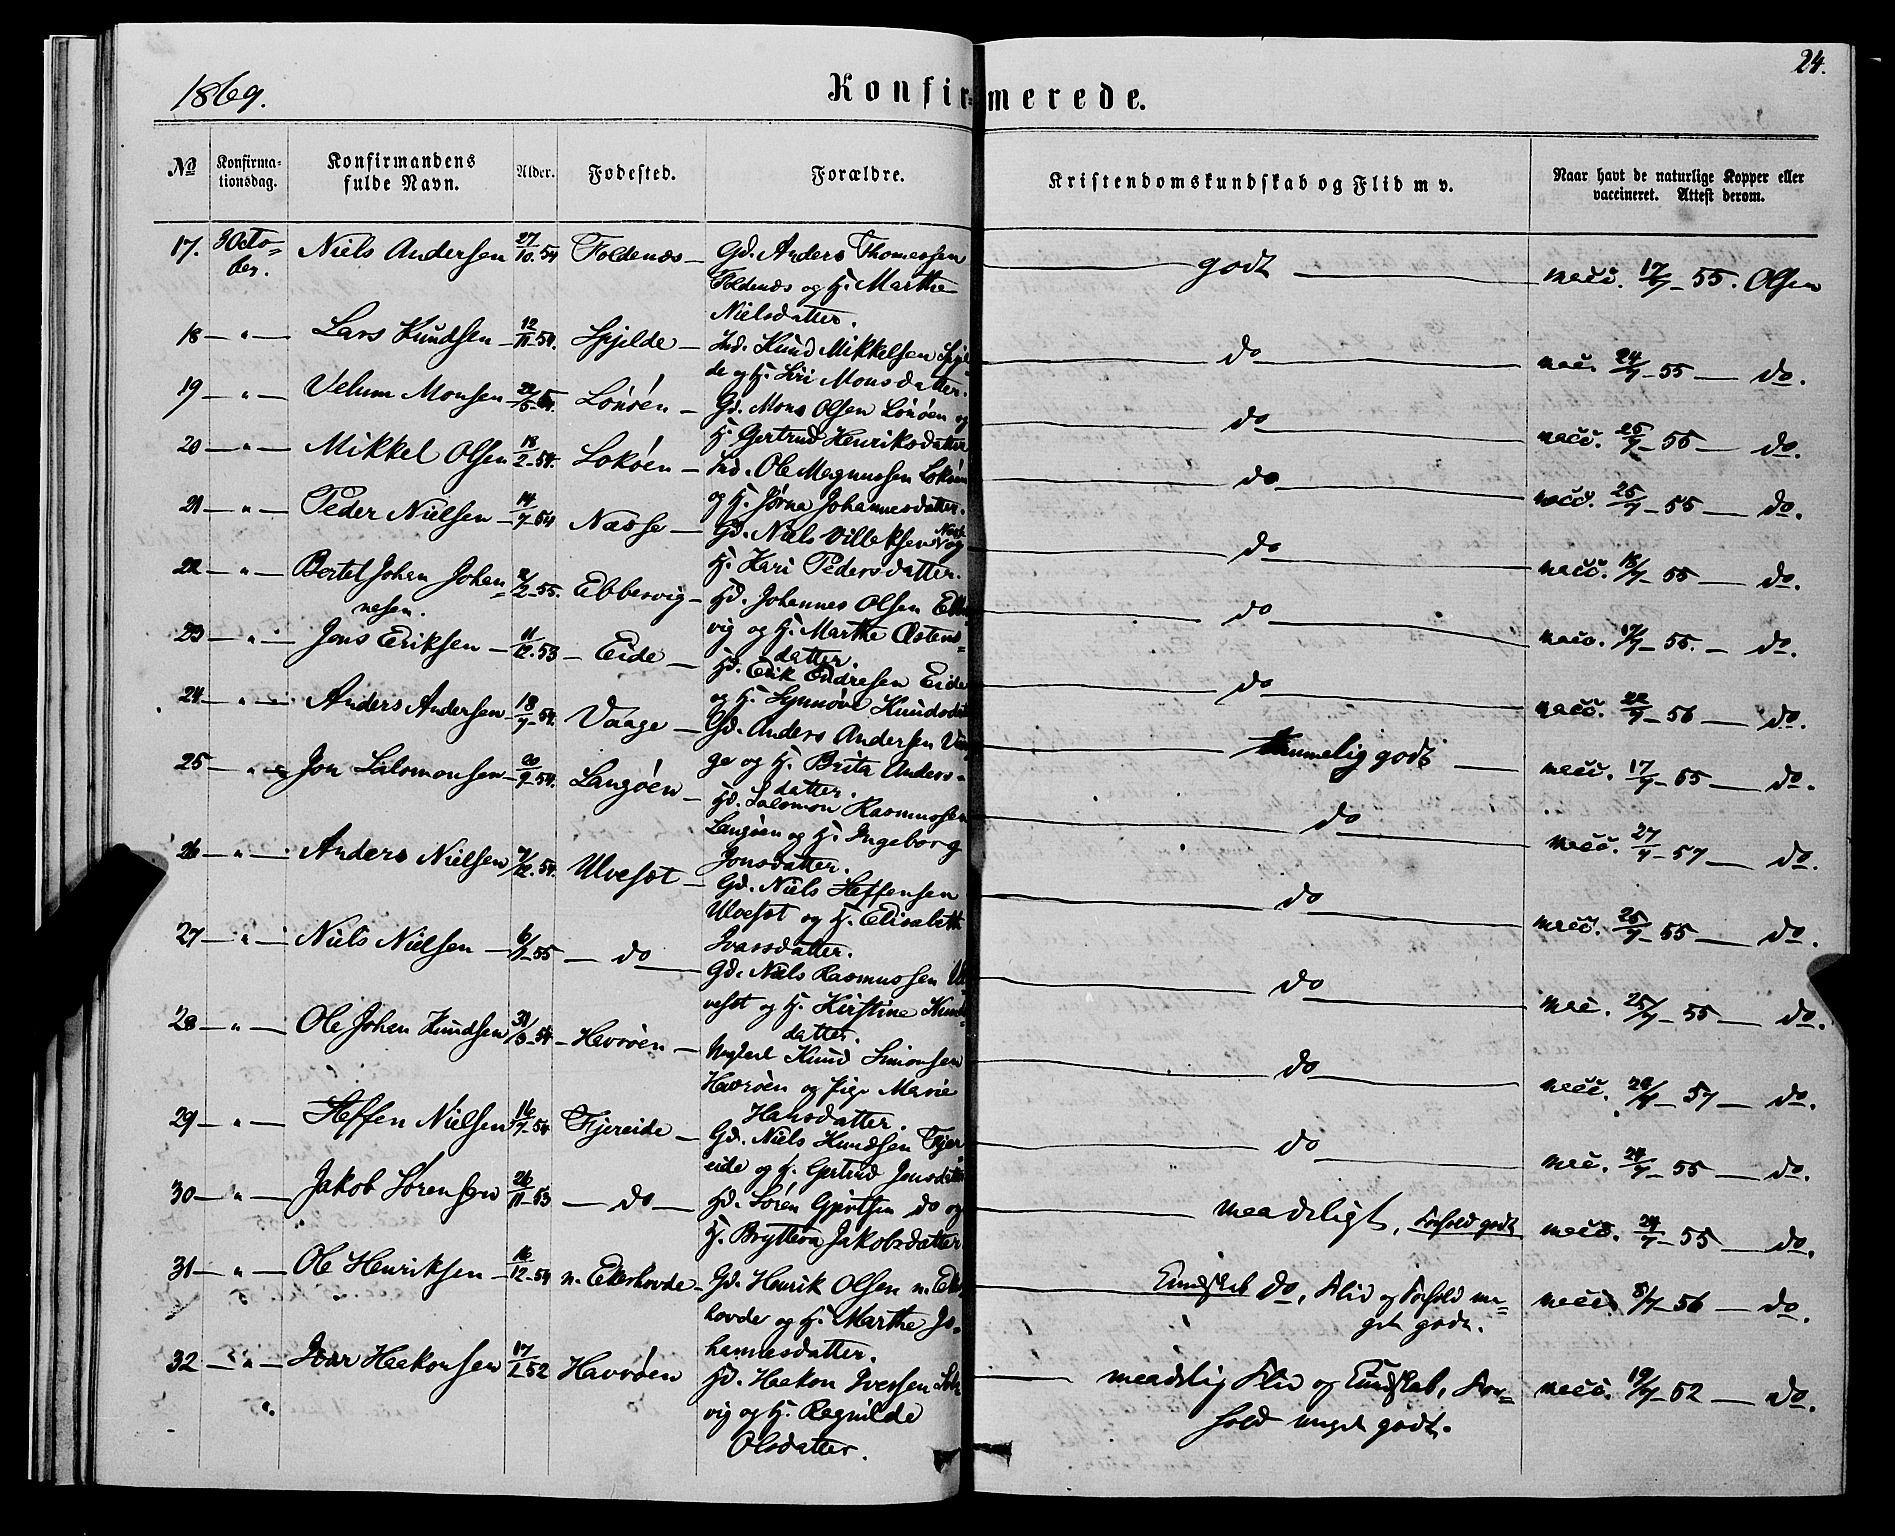 1869.
Konfirmerede.
24.
No
Konfirma-
tionsdag.
Konfirmandens
fulde Navn.
Alder.
Fødested.
Forældre.
Kristendomskundskab og Flid m v.
Naar havt de naturlige Kopper eller
vaccineret. Attest derom.
17. 3 Octo- Niels Andersen 27/10.54 Foldenæs Gd. Anders Thomessen godt vacc. 17/7-55. Olsen
ber. Foldenæs og H. Marthe
Nielsdatter.
18 — " — Lars Knudsen 12/11.54. Spjelde Ind. Knud Mikkelsen do vac. 24/7-55 — do.
de og H. Siri Monsdatter.
19 — " — Velum Monsen Lønøen Gd. Mons Olsen Lønøen og do vacc. 25/7-55 — do.
H. Gertrud Henriksdatter
20 — " — Mikkel Olsen 18/2-54. Lokøen Ind. Ole Magnussen Lokøen do vacc. 25/7-55 — do.
og H. Jørna Johannesdatter.
21 — " — Peder Nielsen 14/7-54 Næsse Gd. Niels Villeksen og do vacc. 18/7-55 — do.
H. Kari Pedersdatter.
22 — " — Bertel Johan Johan- 2/2-55. Ebbesvig Hd. Johannes Olsen do vacc. 17/7-55. — do.
nesen. vig og H. Marthe Østens-
datter.
23 — " — Jens Eriksen 11/12.53 Eide Hd. Erik Endresen Eide do vacc. 22/7-56 — do.
og H. Synnøve
24 — " — Anders Andersen 18/7-54. Vaage Gd. Anders Andersen temmelig godt vacc. 17/7-55 — do.
ge og H. Brita Anders-
datter.
25 — " — Jon Salomonsen 20/9-54. Langøen Hd. Salomon Rasmussen do vacc. 27/7-57 — do.
Langøen og H. Ingeborg
Jonsdatter.
26 — " — Anders Nielsen 7/12.54. Ulvesæt Gd. Niels Steffensen do vacc. 25/7-55 — do.
Ulvesæt og H. Elisabeth
Ivarsdatter.
27 — " — Niels Nielsen do Gd. Niels Rasmussen Ul- do vac. 25/7-55 — do.
vesæt og H. Kirstine
datter.
28 — " — Ole Johan Knudsen Havrøen Ungkarl Knud Simonsen do vacc. 57 — do.
Havrøen og Pige Marie
Hansdatter.
29 — " — Steffen Nielsen 16/7-54 Fjereide Gd. Niels Knudsen Fjer- do vac. 24/7-55 — do.
eide og H. Gertrud Jonsdatter
30 — " — Jakob Sørensen 26/11-53 do Hd. Søren Gjertsen do og maadeligt, Forhold godt vacc. 24/7-55 — do.
H. Bryttera Jakobsdatter
31 — " — Ole Henriksen 16/12-54 n. Ekerhovde Gd. Henrik Olsen n. Eker- Kundskab do, Flid og Forhold me- vacc. 8/7-56 — do.
hovde og H. Marthe Jo- get godt.
hannesdatter.
32 — " — Ivar Haakonsen 17/1-52 Havrøen Hd. Haakon Iversen maadelig Flid og Kundskab, For- vacc. 19/7-52 — do.
vig og H. Ragnilde hold meget godt.
Olsdatter.